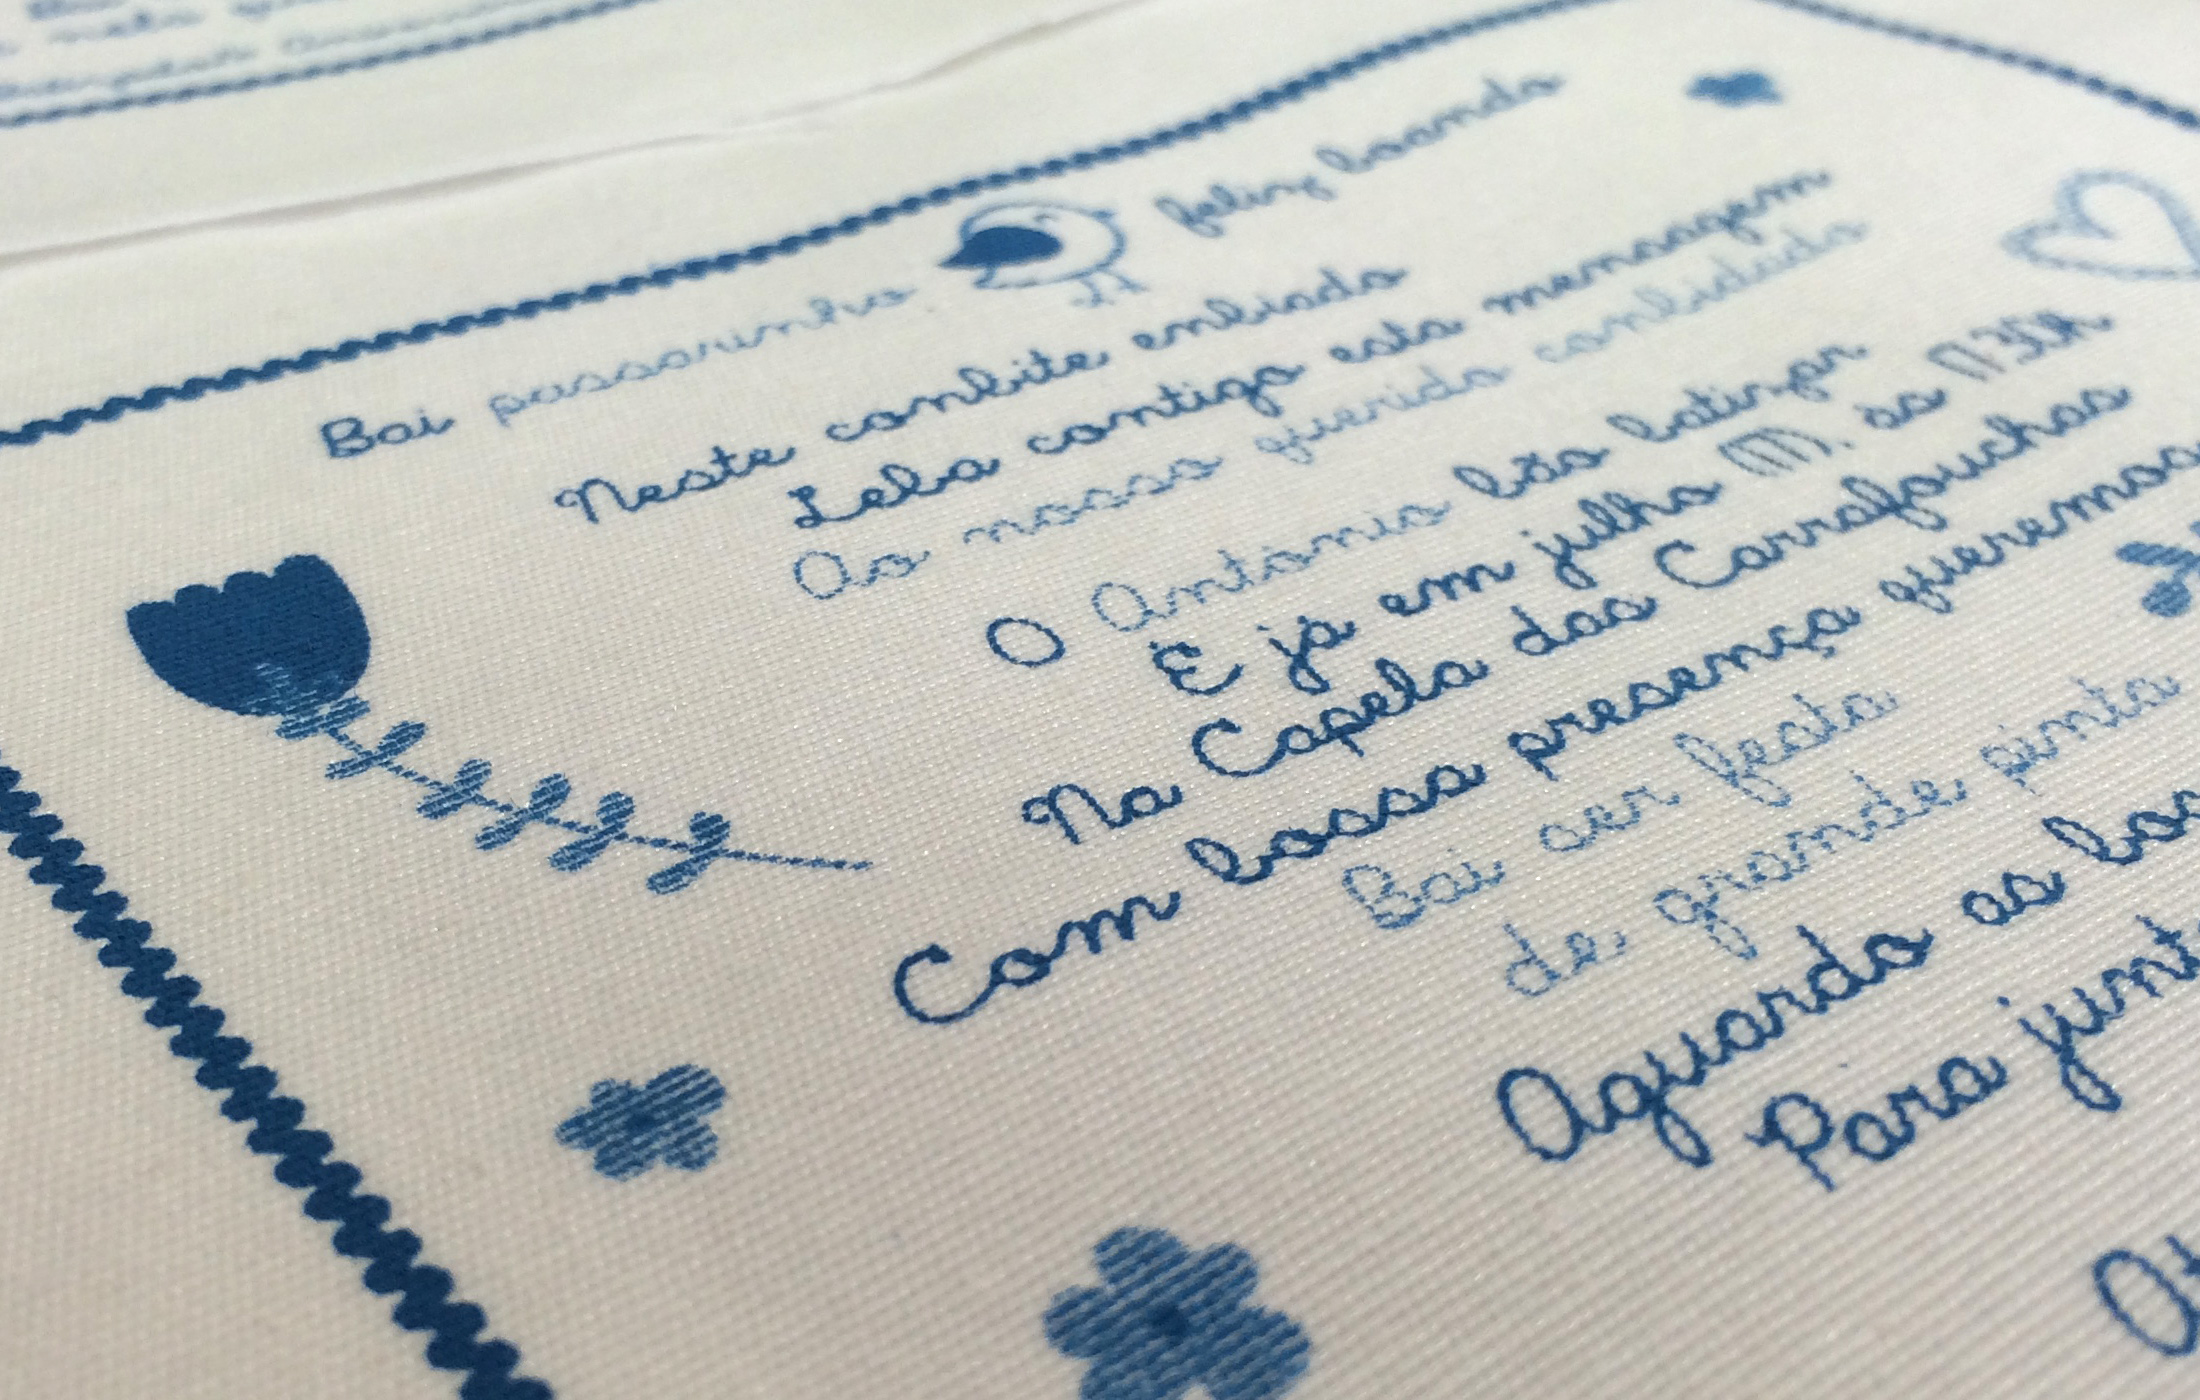 Bai passarinho feliz boando
Neste conbite enbiado
Leba contigo esta mensagem
Ao nosso querido conbidado
O António bão batizar
E já em julho (11), às 11:30H
Na Capela das Carrafouchas
Com bossa presença queremos
Bai ser festa
de grande pinta
Aguardo as
Para